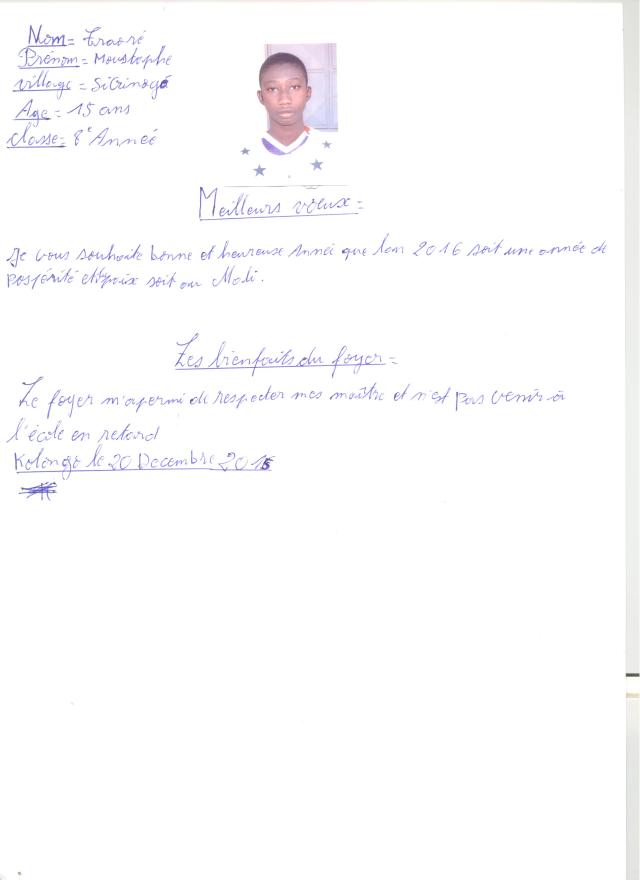 Nom = Traoré
Prénom = Moustaphe
village = Sitrinogé
Age = 15 ans
classe = 8e Année
Meilleurs voeux =
Je vous souhaite bonne et heureuse Année que l'an 2016 soit une année de
posférité et paix soit au Mali.
Les bienfaits du foyer =
Le foyer m'apermi de respecter mes maître et n'est pas venir à
l'école en retard
Kolongo le 20 Decembre 2015